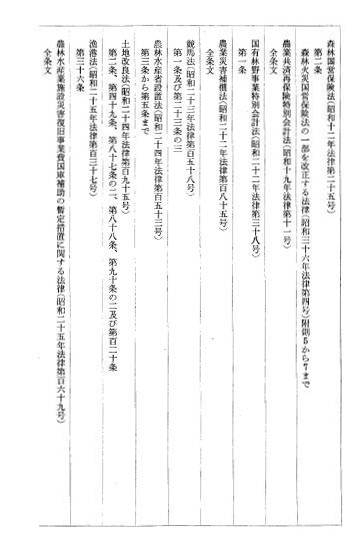 森林国営保険法(昭和十二年法律第二十五号)
第二条
森林火災国営保険法の一部を改正する法律(昭和三十六年法律第四号)附則5から7まで
農業共済再保険特別会計法(昭和十九年法律第十一号)
全条文
国有林野事業特別会計法(昭和二十二年法律第三十八号)
第一条
農業災害補償法(昭和二十二年法律第百八十五号)
全条文
競馬法(昭和二十三年法律第百五十八号)
第一条及び第二十三条の三
農林水産省設置法(昭和二十四年法律第百五十三号)
第三条から第五条まで
土地改良法(昭和二十四年法律第百九十五号)
第二条、第四十九条、第八十七条の二、第八十八条、第九十条の二及び第百二十条
漁港法(昭和二十五年法律第百三十七号)
第三十六条
農林水産業施設災害復旧事業費国庫補助の暫定措置に関する法律(昭和二十五年法律第百六十九号)
全条文